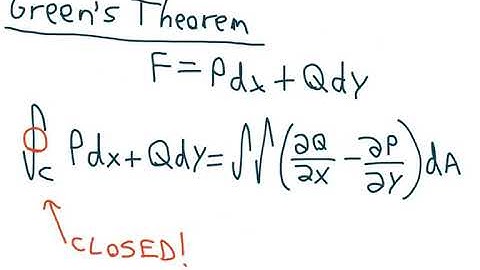 Green's Theorem
F = Pdx + Qdy
∮c Pdx + Qdy = ∫∫(∂Q/∂x - ∂P/∂y)dA
CLOSED!